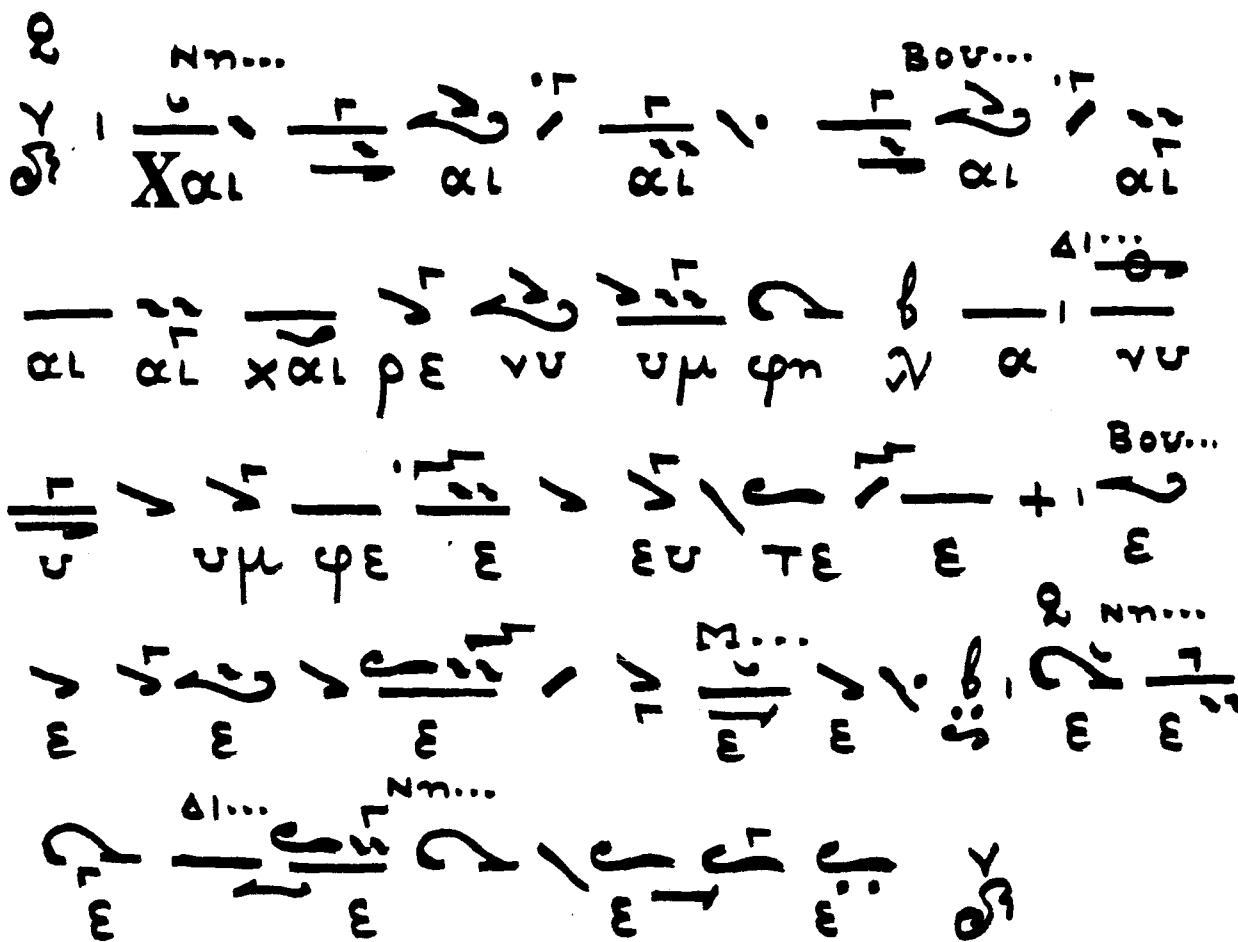 Νη... Βου...
Χαι αι αι αι αι
Δι...
αι αι χαι ρε νυ υμ φη α νυ
Βου...
υ υμ φε ε ευ τε ε ε
Μ... Νη...
ε ε ε ε ε ε ε
Δι... Νη...
ε ε ε ε